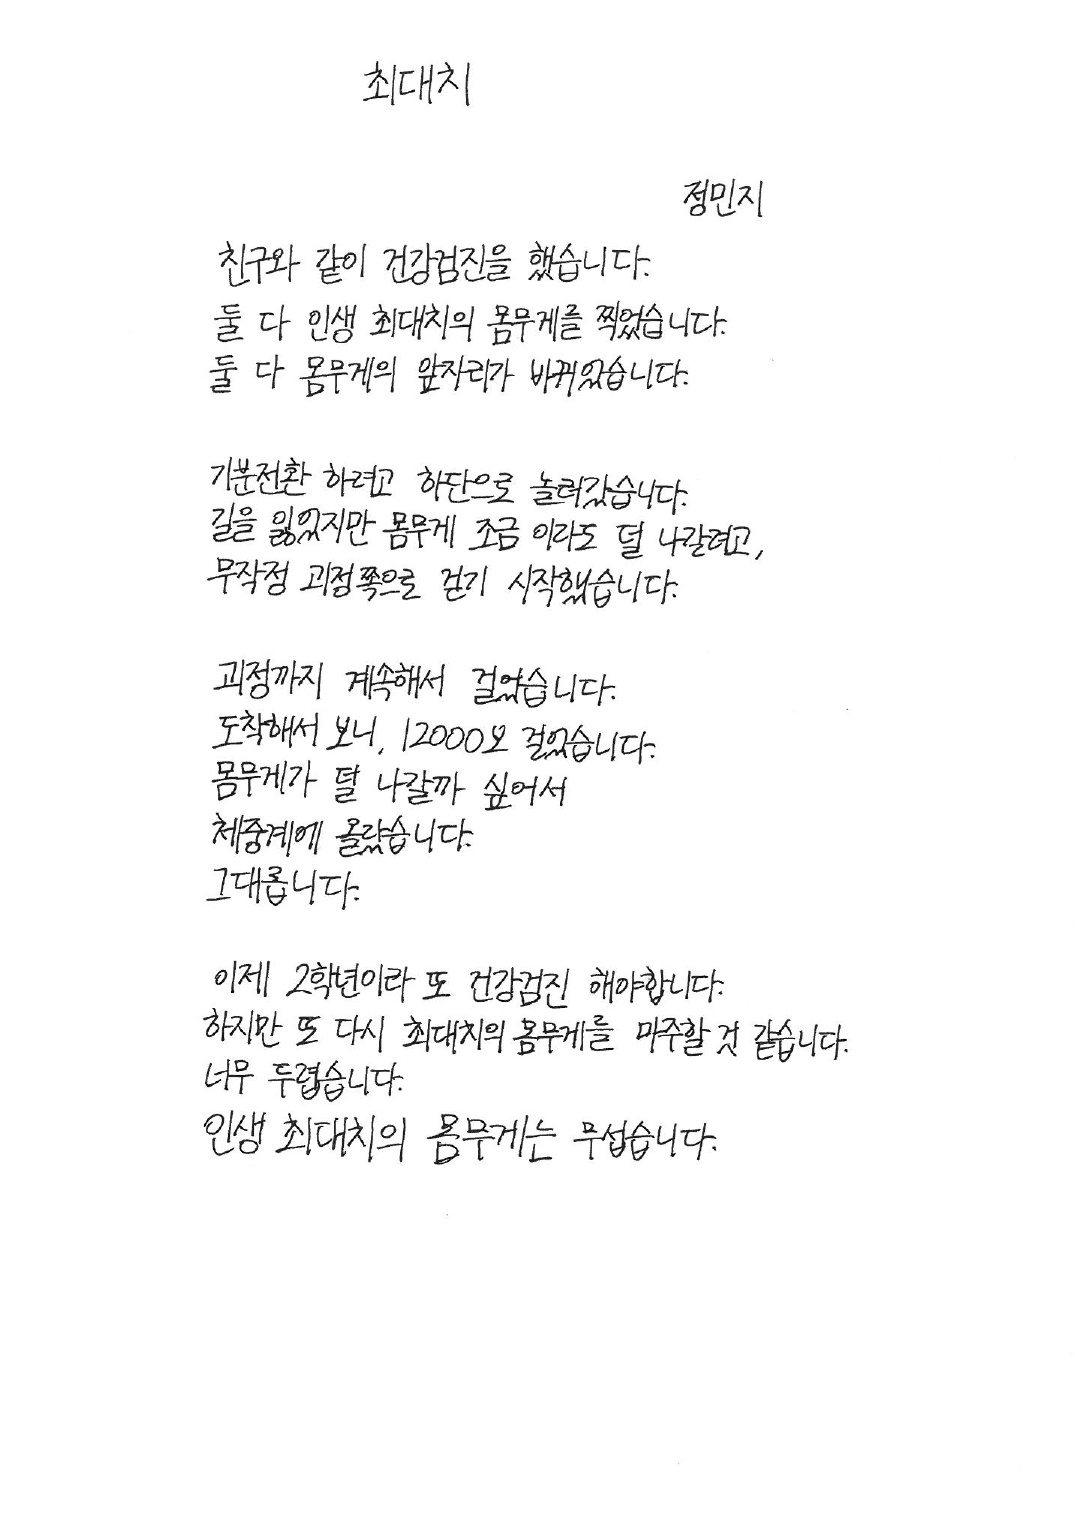 최대치
정민지
친구와 같이 건강검진을 했습니다.
둘 다 인생 최대치의 몸무게를 찍었습니다.
둘 다 몸무게의 앞자리가 바뀌었습니다.
기분전환 하려고 하단으로 놀러갔습니다.
길을 잃었지만 몸무게 조금 이라도 덜 나갈려고,
무작정 괴정쪽으로 걷기 시작했습니다.
괴정까지 계속해서 걸었습니다.
도착해서 보니, 12000보 걸었습니다.
몸무게가 덜 나갈까 싶어서
체중계에 올랐습니다.
그대롭니다.
이제 2학년이라 또 건강검진 해야합니다.
하지만 또 다시 최대치의 몸무게를 마주할 것 같습니다.
너무 두렵습니다.
인생 최대치의 몸무게는 무섭습니다.